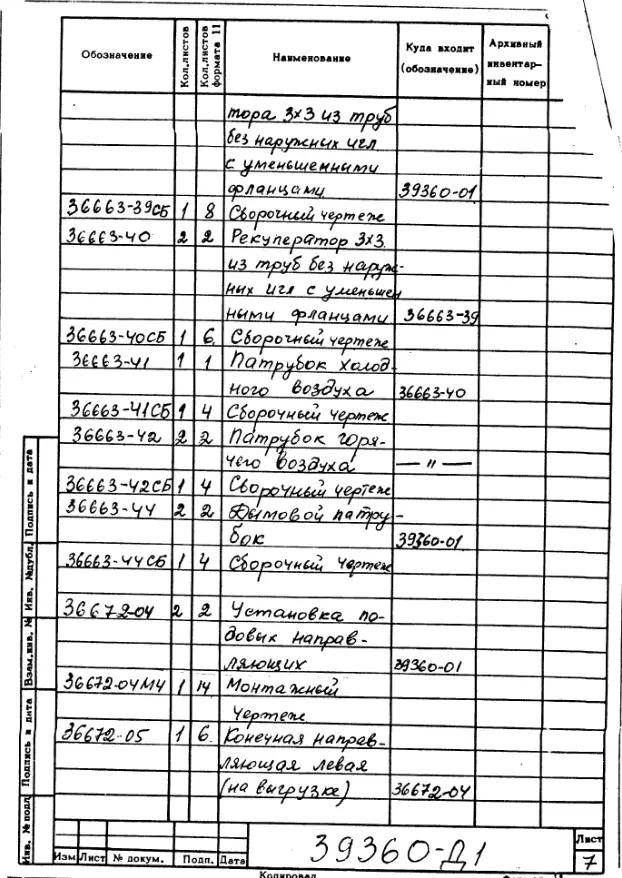 Обозначение Кол.листов Кол.листов формата 11 Наименование Куда входит (обозначение) Архивный инвентар-ный номер
тора 3х3 из труб
без наружных игл
с уменьшенными
фланцами 39360-01
36663-39СБ 1 8 Сборочный чертеж
36663-40 2 2 Рекуператор 3х3
из труб без наруж-
ных игл с уменьшен
ными фланцами 36663-39
36663-40СБ 1 6. Сборочный чертеж
36663-41 1 1 Патрубок холод-
ного воздуха 36663-40
36663-41СБ 1 4 Сборочный чертеж
36663-42 2 2 Патрубок горя-
чего воздуха — " —
36663-42СБ 1 4 Сборочный чертеж
36663-44 2 2 Дымовой патру-
бок 39360-01
36663-44СБ 1 4 Сборочный чертеж
36672-04 2 2 Установка по-
довых направ-
ляющих 39360-01
36672-04МЧ 1 14 Монтажный
чертеж
36672-05 1 6. Конечная направ-
ляющая левая
(на выгрузке) 36672-04
Инв. № подл Подпись и дата Взам.инв. № Инв. №дубл. Подпись и дата
Изм Лист № докум. Подп. Дата
39360-Д1
Лист
7
Копировал